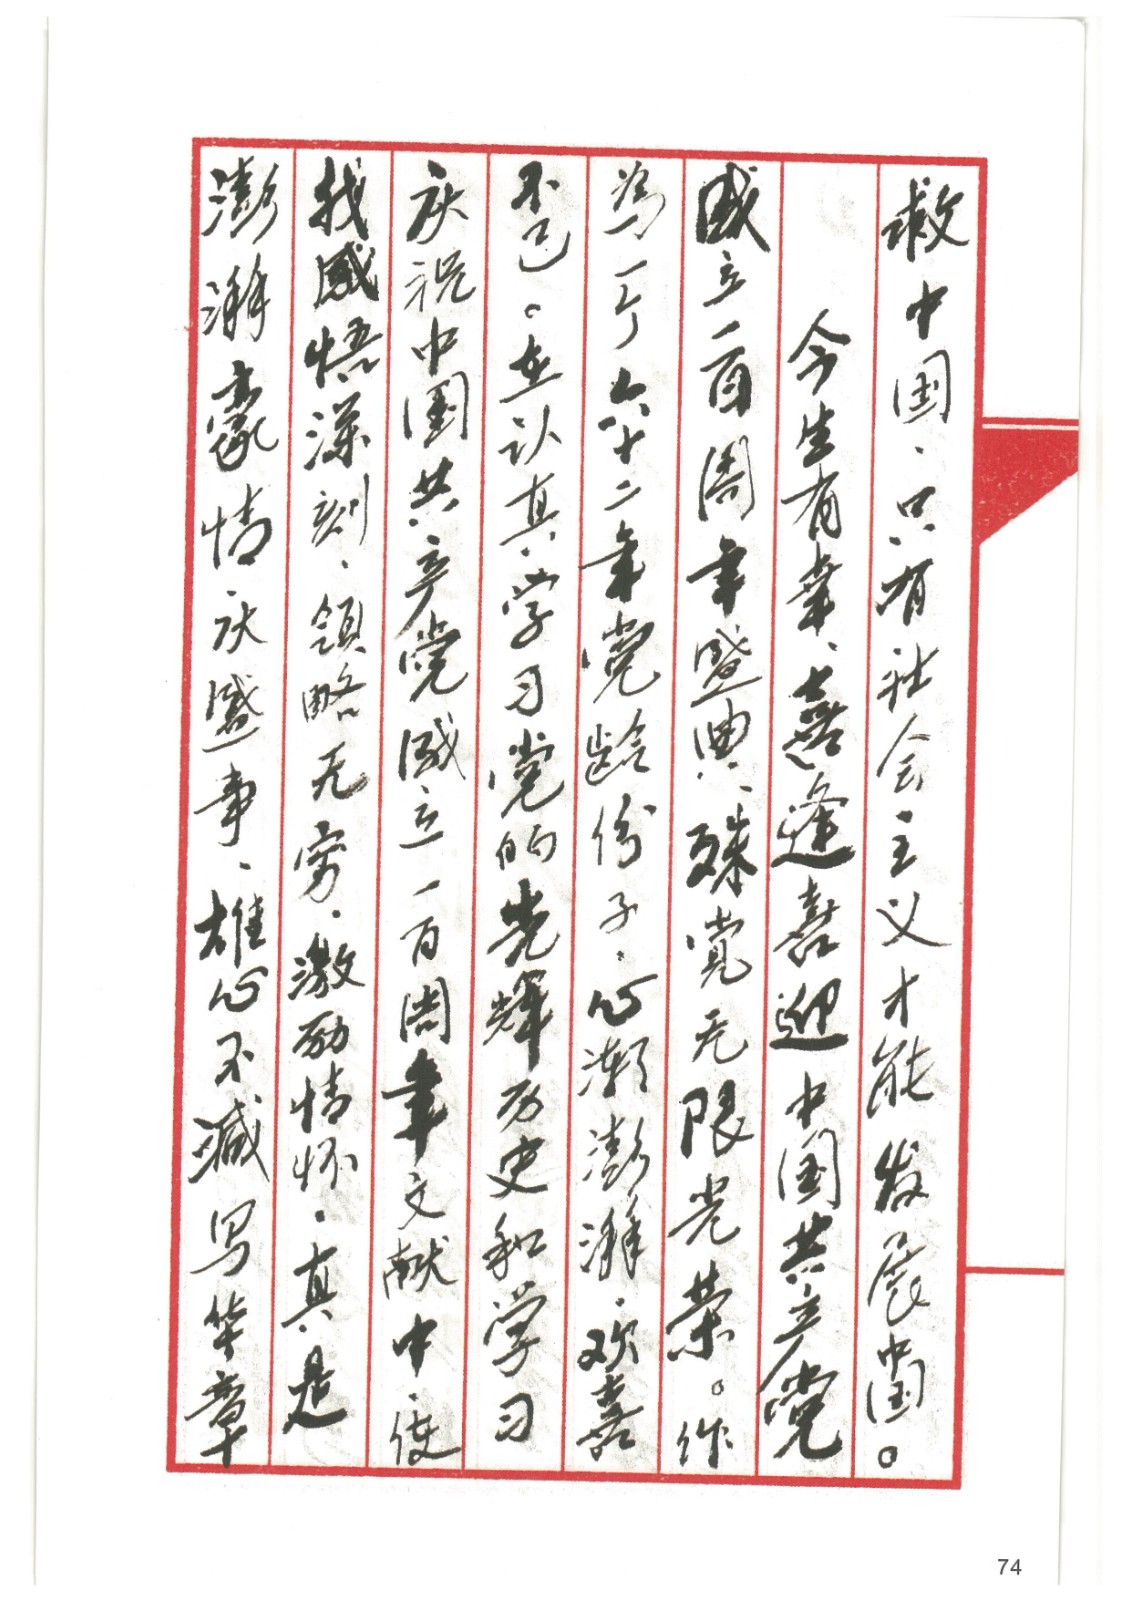 救中国、只有社会主义才能发展中国。
今生有幸、喜逢喜迎中国共产党
成立一百周年盛典、殊觉无限光荣。作
为一个六十二年党龄份子、心潮澎湃、欢喜
不已。在认真学习党的光辉历史和学习
庆祝中国共产党成立一百周年文献中、使
我感悟深刻、领略无穷、激励情怀、真是
澎湃豪情庆盛事、雄心不减写华章
74